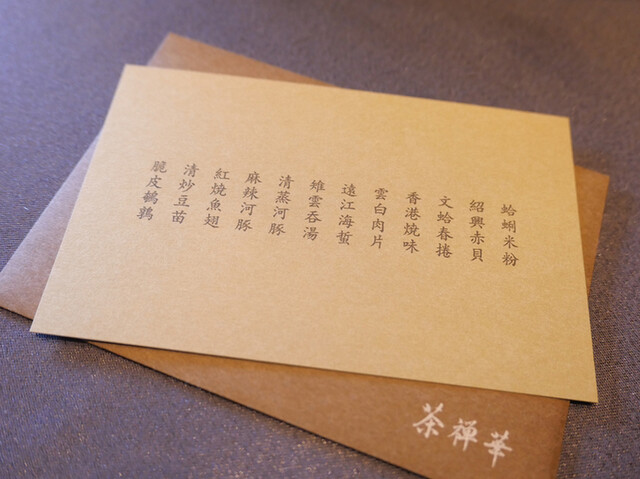 蛤蜊米粉
紹興赤貝
文蛤春捲
香港燒味
雲白肉片
遠江海蜇
雉雲吞湯
清蒸河豚
麻辣河豚
紅燒魚翅
清炒豆苗
脆皮鵪鶉
茶禅華